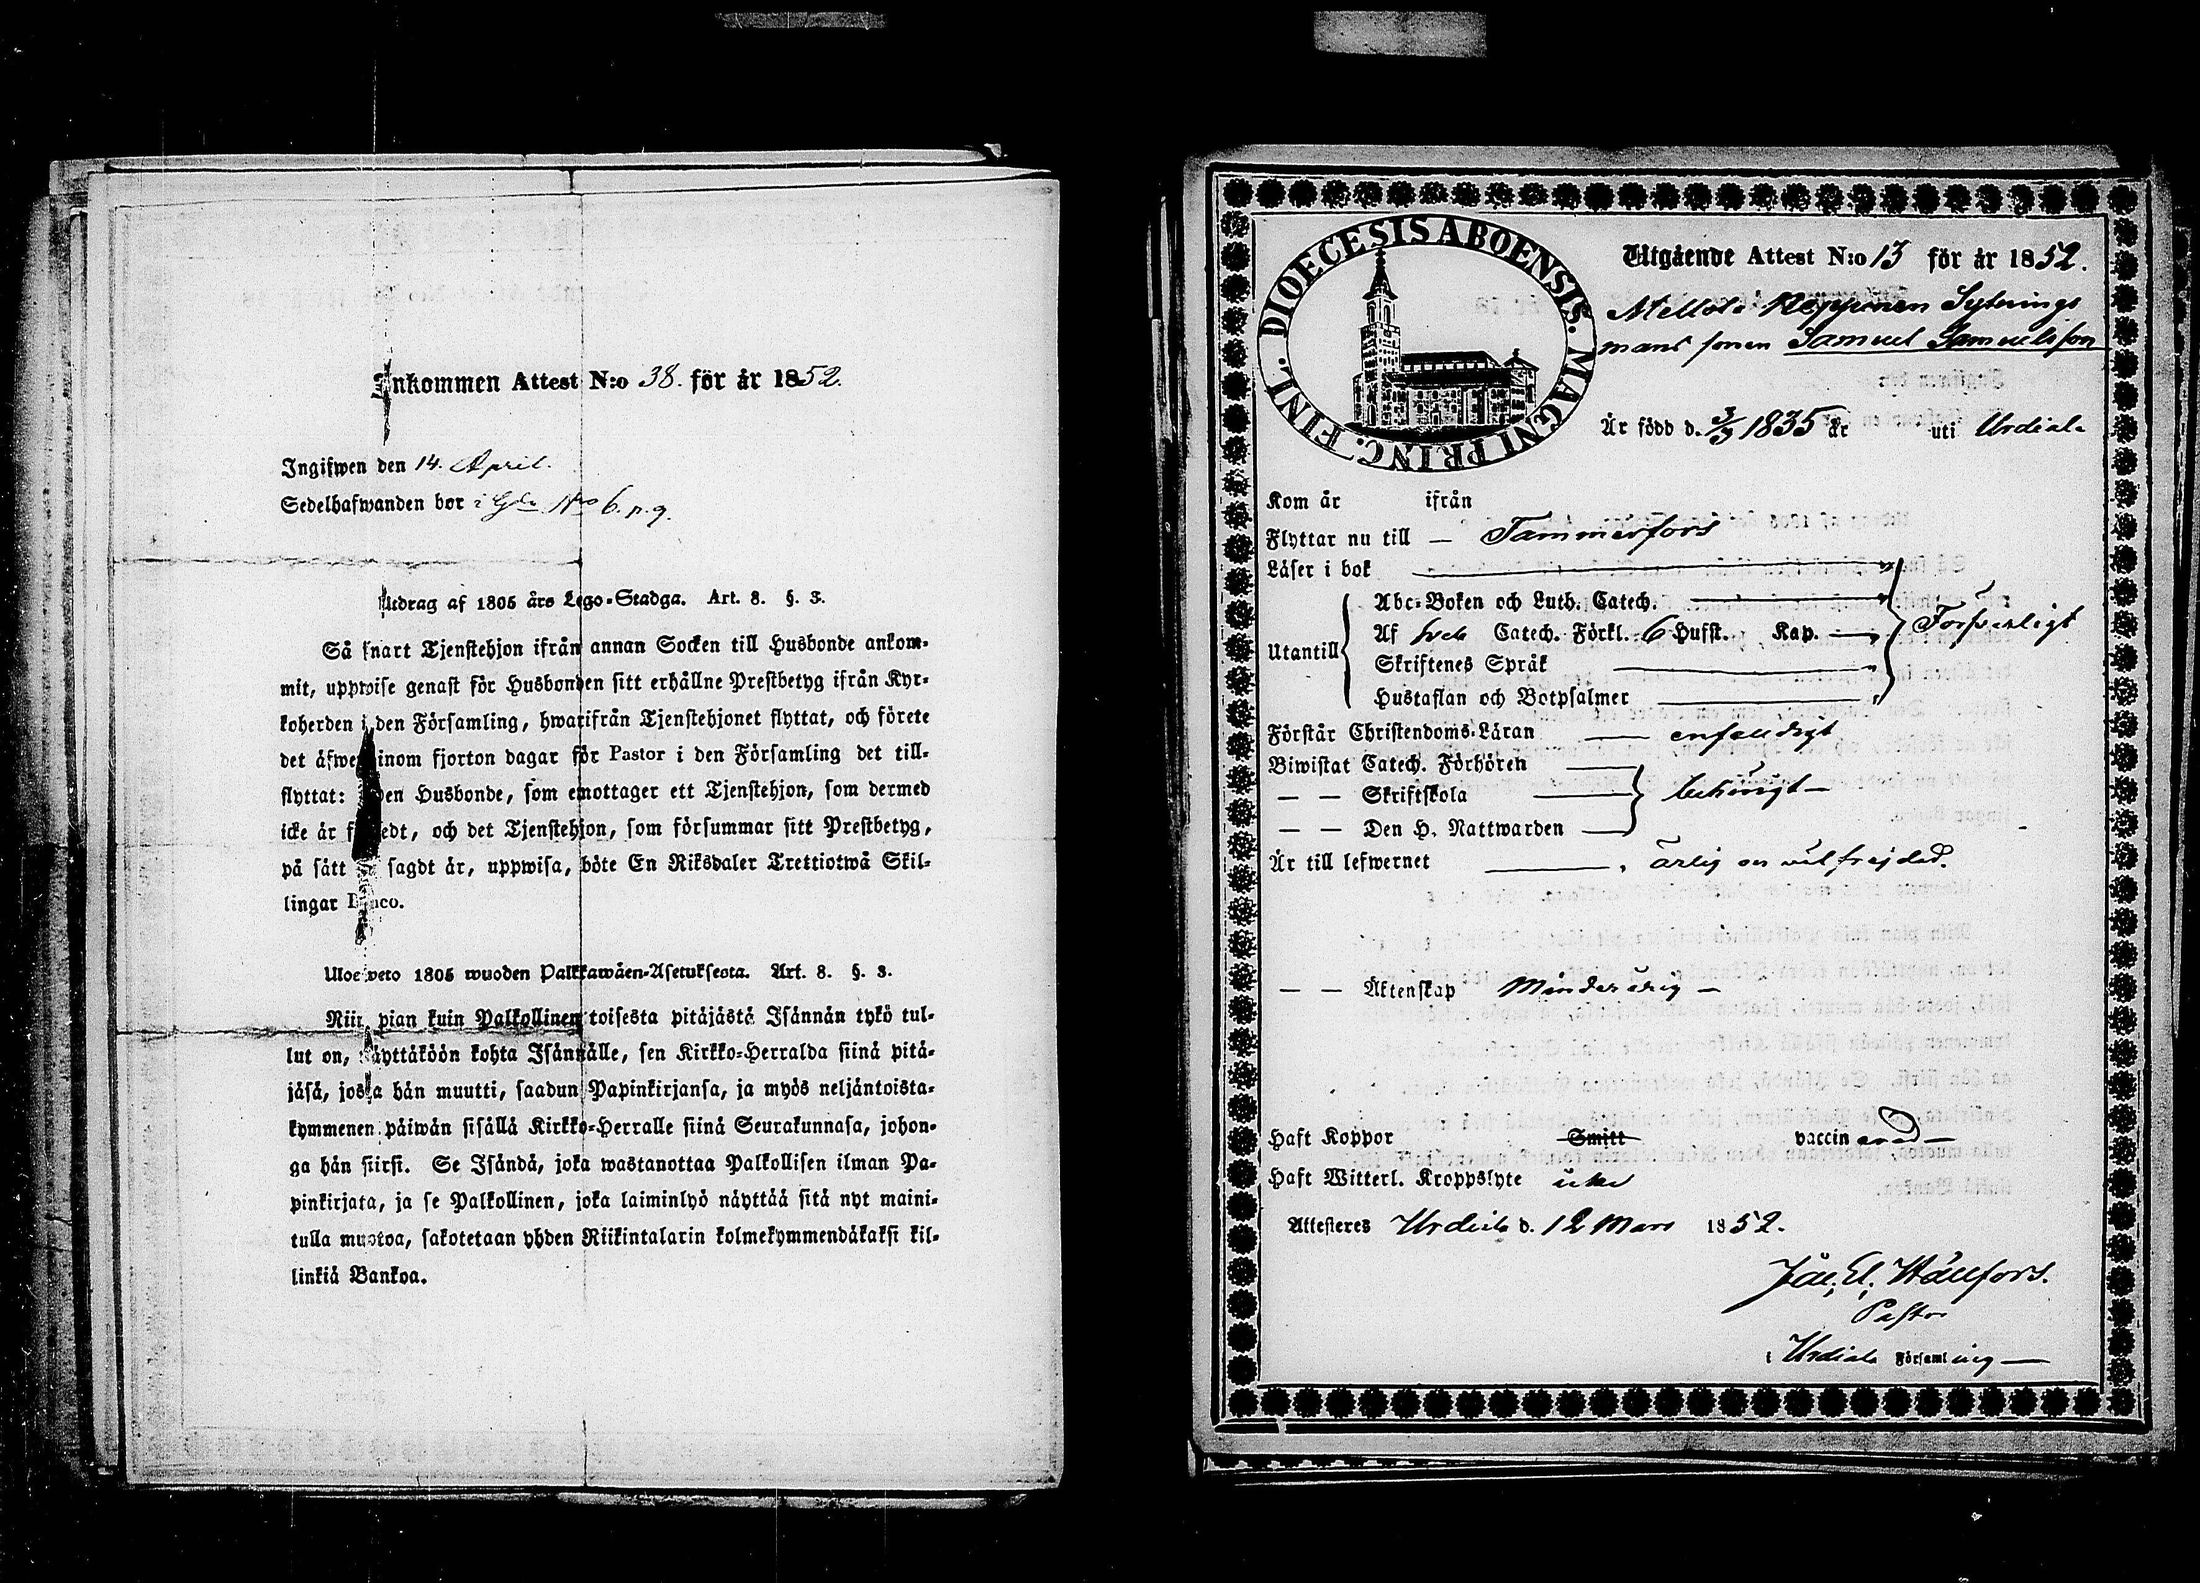 Inkommen Attest N:o 38. för år 1852.
Ingifwen den 14. April.
Sedelhafwanden bor i Gdn Nro 6. n. q.
Utdrag af 1805 års Lego-Stadga. Art. 8. §. 3.
Så snart Tjenstehjon ifrån annan Socken till Husbonde ankom-
mit, uppwise genast för Husbonden sitt erhållne Prestbetyg ifrån Kyr-
koherden i den Församling, hwarifrån Tjenstehjonet flyttat, och förete
det äfwen inom fjorton dagar för Pastor i den Församling det till-
flyttat: den Husbonde, som emottager ett Tjenstehjon, som dermed
icke är försedt, och det Tjenstehjon, som försummar sitt Prestbetyg,
på sätt sagdt är, uppwisa, böte En Riksdaler Trettiotwå Skil-
lingar Banco.
Ulosweto 1805 wuoden Palkkawäen-Asetuksesta. Art. 8. §. 3.
Niin pian kuin Palkollinen toisesta pitäjästä Isännän tykö tul-
lut on, näyttäköön kohta Isännälle, sen Kirkko-Herralda siinä pitä-
jäsä, josta hän muutti, saadun Papinkirjansa, ja myös neljäntoista-
kymmenen päiwän sisällä Kirkko-Herralle siinä Seurakunnasa, johon-
ga hän siirsi. Se Isändä, joka wastanottaa Palkollisen ilman Pa-
pinkirjata, ja se Palkollinen, joka laiminlyö näyttää sitä nyt maini-
tulla muotoa, sakotetaan yhden Riikintalarin kolmekymmendäkaksi kil-
linkiä Bankoa.
DIOECESIS ABOENSIS. MAGNI PRINC. FINL.
Utgående Attest N:o 13 för år 1852.
Mellola Koppinen Sytnings
mans sonen Samuel Samuelsson
Är född d. 3/9 1835 är uti Urdiala
Kom år ifrån
Flyttar nu till — Tammerfors
Läser i bok
Abc-Boken och Luth. Catech.
Utantill Af Catech. Förkl. 6 Hufst. Kap. — Försvarligt
Skriftenes Språk
Hustaflan och Botpsalmer
Förstår Christendoms-Läran — enfaldigt
Biwistat Catech. Förhören
— — Skriftskola behörigt —
— — Den H. Nattwarden
Är till lefwernet ärlig och väl frejdad.
— — Äktenskap Minderårig —
Haft Koppor Smitt vaccinerad —
Haft Witterl. Kroppslyte icke
Attesteres Urdiala d. 12 Mars 1852.
Joh. El. Hällfors.
Pastor
i Urdiala Församling —